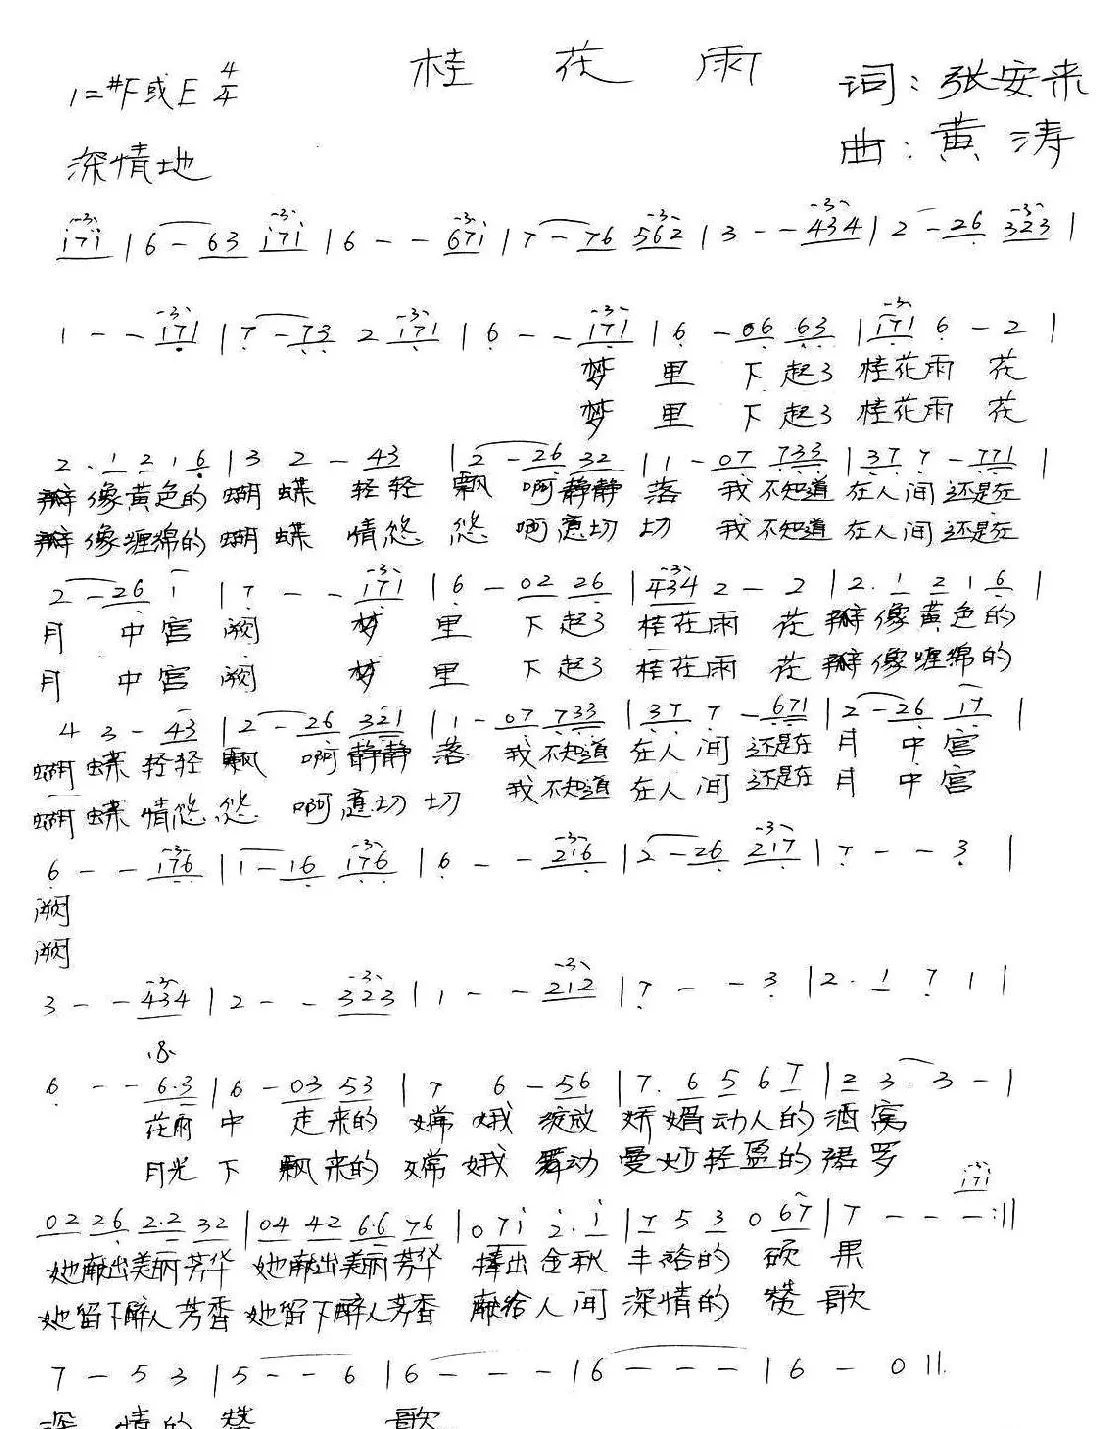 桂花雨
1=#F或E 4/4
词:张安来
曲:黄涛
深情地
i7i | 6 - 63 i7i | 6 - - 67i | 7 - 76 562 | 3 - - 434 | 2 - 26 323 |
1 - - 171 | 7 - 73 2 171 | 6 - - 171 | 6 - 06 63 | 171 6 - 2 |
梦里下起了桂花雨花
梦里下起了桂花雨花
2. 1 2 1 6 | 3 2 - 43 | 2 - 26 32 | 1 - 07 733 | 37 7 - 771 |
瓣像黄色的蝴蝶轻轻飘啊静静落我不知道在人间还是在
瓣像缠绵的蝴蝶情悠悠啊意切切我不知道在人间还是在
2 - 26 1 | 7 - - 171 | 6 - 02 26 | 434 2 - 2 | 2. 1 2 1 6 |
月中宫阙梦里下起了桂花雨花瓣像黄色的
月中宫阙梦里下起了桂花雨花瓣像缠绵的
4 3 - 43 | 2 - 26 321 | 1 - 07 733 | 37 7 - 671 | 2 - 26 17 |
蝴蝶轻轻飘啊静静落我不知道在人间还是在月中宫
蝴蝶情悠悠啊意切切我不知道在人间还是在月中宫
6 - - 176 | 1 - 16 176 | 6 - - 216 | 2 - 26 217 | 7 - - 3 |
阙
阙
3 - - 434 | 2 - - 323 | 1 - - 212 | 7 - - 3 | 2. 1 7 1 |
6 - - 6.3 | 6 - 03 53 | 7 6 - 56 | 7. 6 5 6 7 | 2 3 3 - |
花雨中走来的嫦娥绽放娇媚动人的酒窝
月光下飘来的嫦娥舞动曼妙轻盈的裙罗
i7i
02 26 2.2 32 | 04 42 6.6 76 | 0 7i 2. i | 7 5 3 0 67 | 7 - - - :||
她献出美丽芳华她献出美丽芳华捧出金秋丰裕的硕果
她留下醉人芳香她留下醉人芳香献给人间深情的赞歌
7 - 5 3 | 5 - - 6 | 6 - - - | 6 - - - | 6 - 0 ||
深情的赞歌